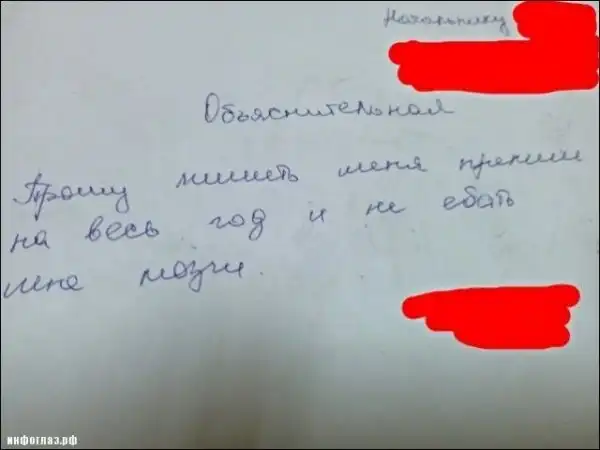 Начальнику
Объяснительная
Прошу лишить меня премии
на весь год и не ебать
мне мозги.
инфоглаз.рф